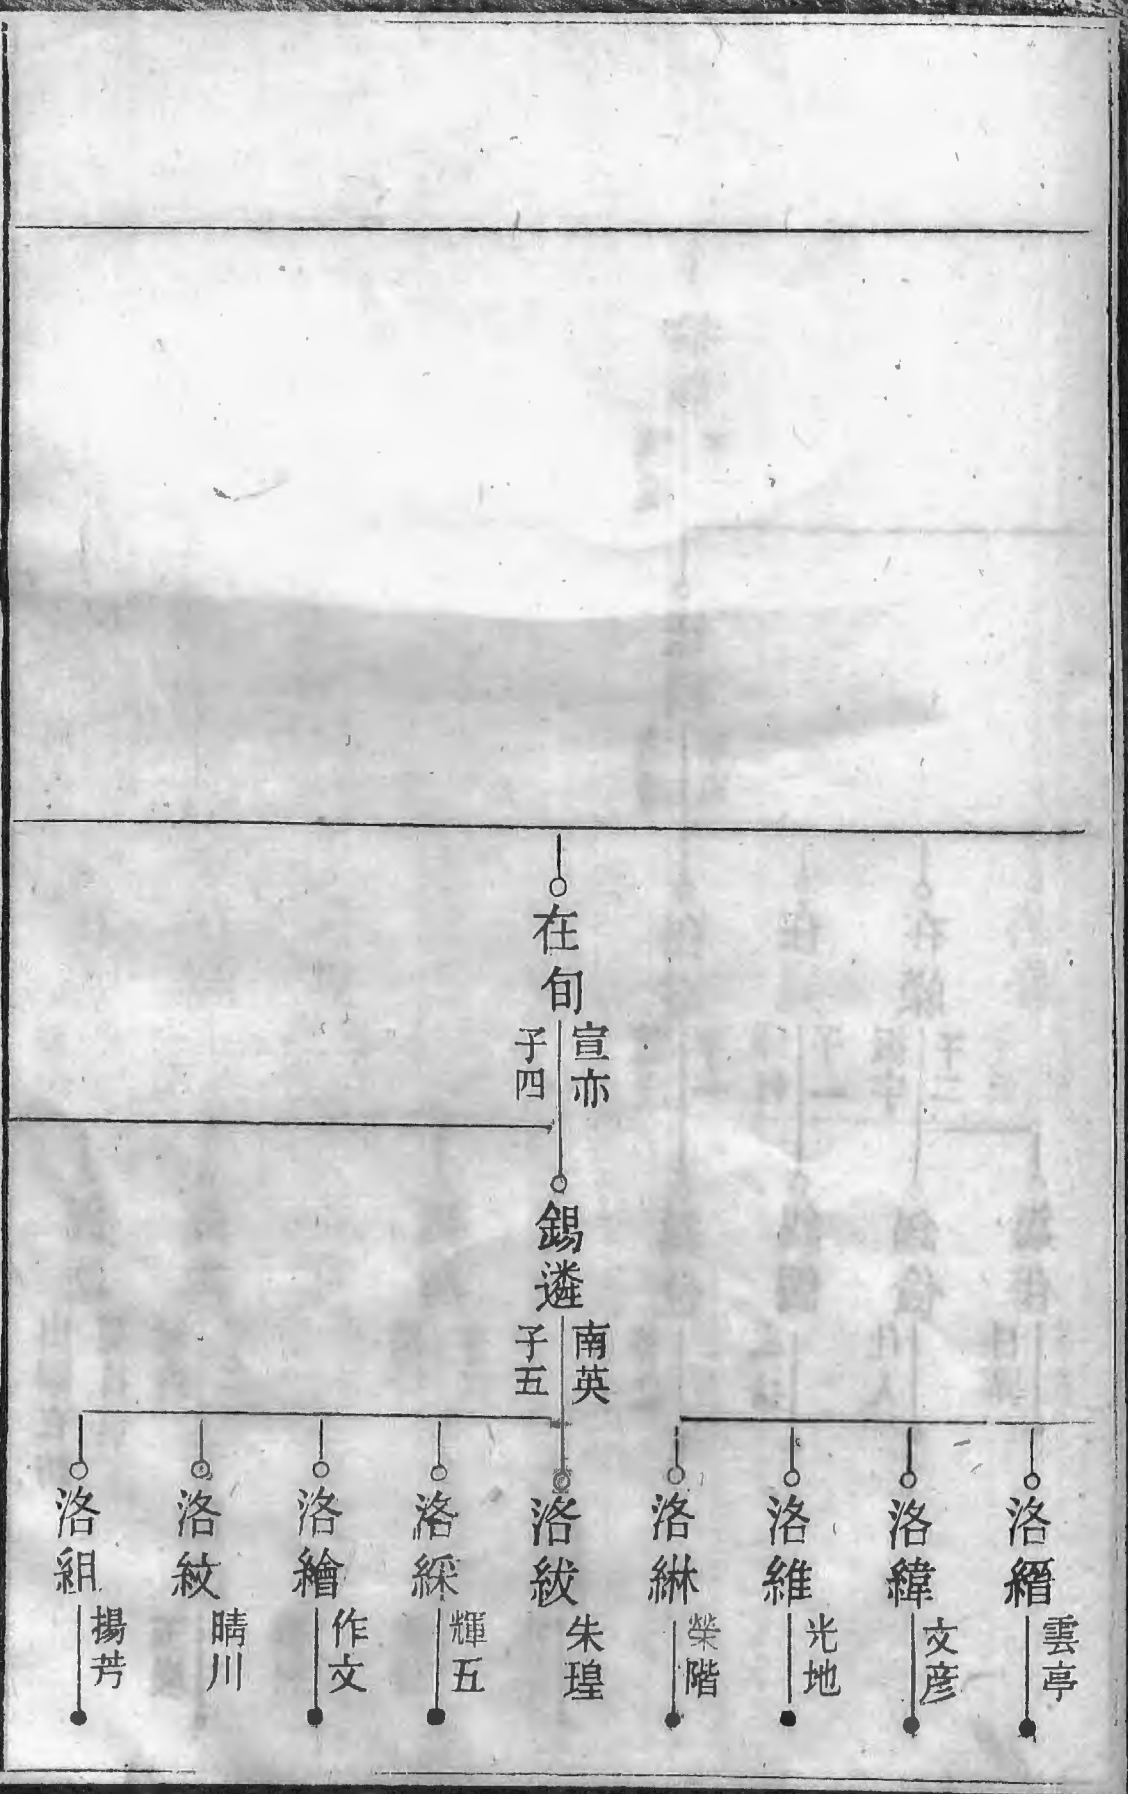 在旬
宣亦
子四
錫遴
南英
子五
洛縉
雲亭
洛緯
文彦
洛維
光地
洛綝
榮階
洛紱
朱瑝
洛綵
輝五
洛繪
作文
洛紋
晴川
洛組
揚芳